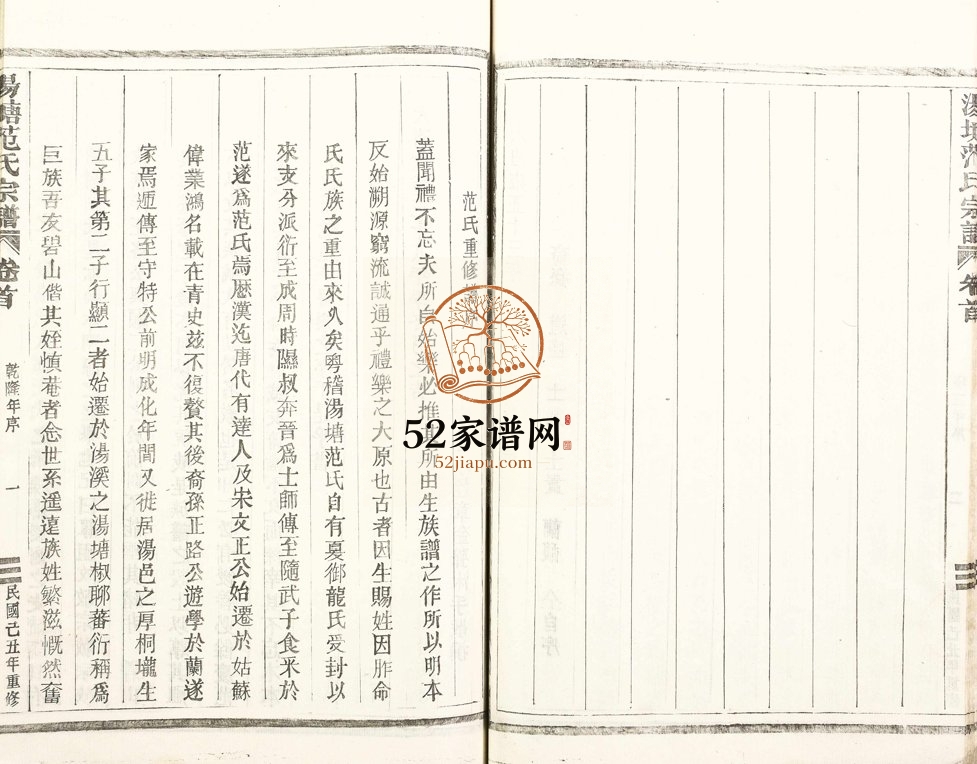 范氏重修
蓋聞禮不忘夫所自始樂必推其所由生族譜之作所以明本
反始溯源窮流誠通乎禮樂之大原也古者因生賜姓因胙命
氏氏族之重由來久矣粤稽湯塘范氏自有夏御龍氏受封以
來支分派衍至成周時隰叔奔晉爲士師傳至隨武子食采於
范遂爲范氏焉歷漢迄唐代有達人及宋文正公始遷於姑蘇
偉業鴻名載在青史兹不復贅其後裔孫正路公遊學於蘭遂
家焉遞傳至守特公前明成化年間又徙居湯邑之厚桐壠生
五子其第二子行顯二者始遷於湯溪之湯塘椒聊蕃衍稱爲
巨族吾友碧山偕其姪慎菴者念世系遥遠族姓繁滋慨然奮
湯塘范氏宗譜
卷首
乾隆年序
一
民國己丑年重修
湯塘范氏宗譜
卷首
52家谱网
52jiapu.com